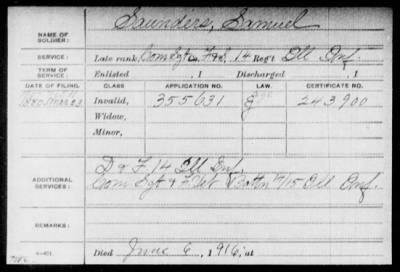 NAME OF SOLDIER: Saunders, Samuel
SERVICE: Late rank, Com Sgt Co. F&S, 14 Reg't Ill Inf.
TERM OF SERVICE: Enlisted , 1 Discharged , 1
DATE OF FILING. CLASS APPLICATION NO. LAW. CERTIFICATE NO.
Invalid, 355631 243900
Widow,
Minor,
ADDITIONAL SERVICES: D & F 14 Ill Inf.
Com Sgt & Batt'n 14/15 Ill Inf.
REMARKS:
Died June 6, 1916, at